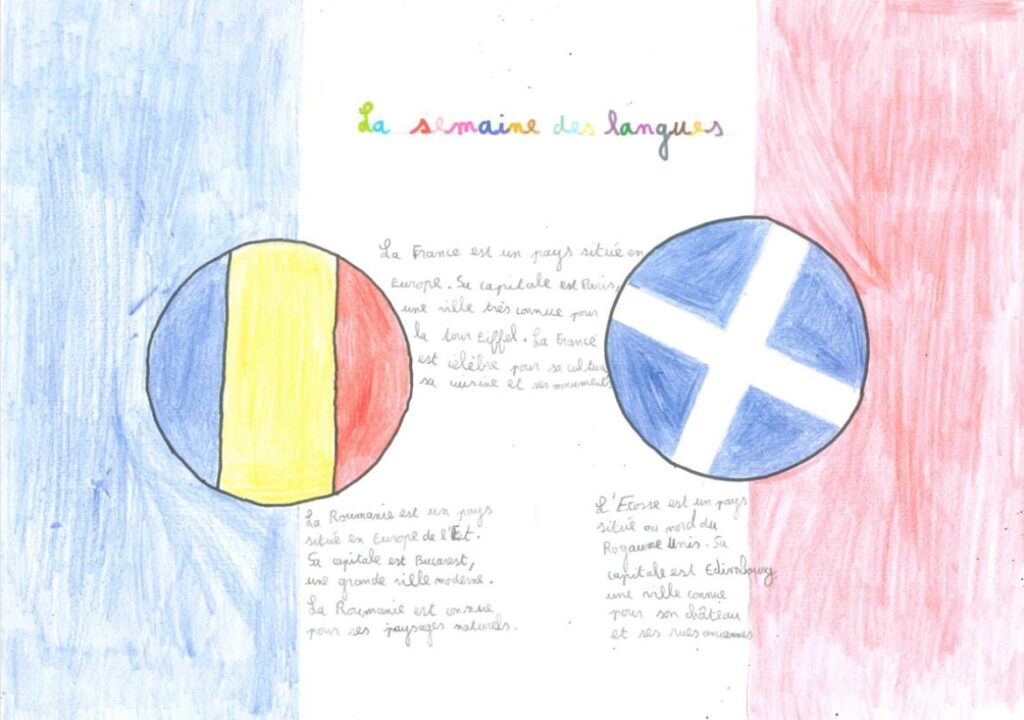 La semaine des langues
La France est un pays situé en
Europe. Sa capitale est Paris,
une ville très connue pour
la tour Eiffel. La France
est célèbre pour sa culture
sa cuisine et ses monuments
La Roumanie est un pays
situé en Europe de l'Est.
Sa capitale est Bucarest,
une grande ville moderne.
La Roumanie est connue
pour ses paysages naturels.
L'Ecosse est un pays
situé au nord du
Royaume Unis. Sa
capitale est Edimbourg
une ville connue
pour son château
et ses rues anciennes